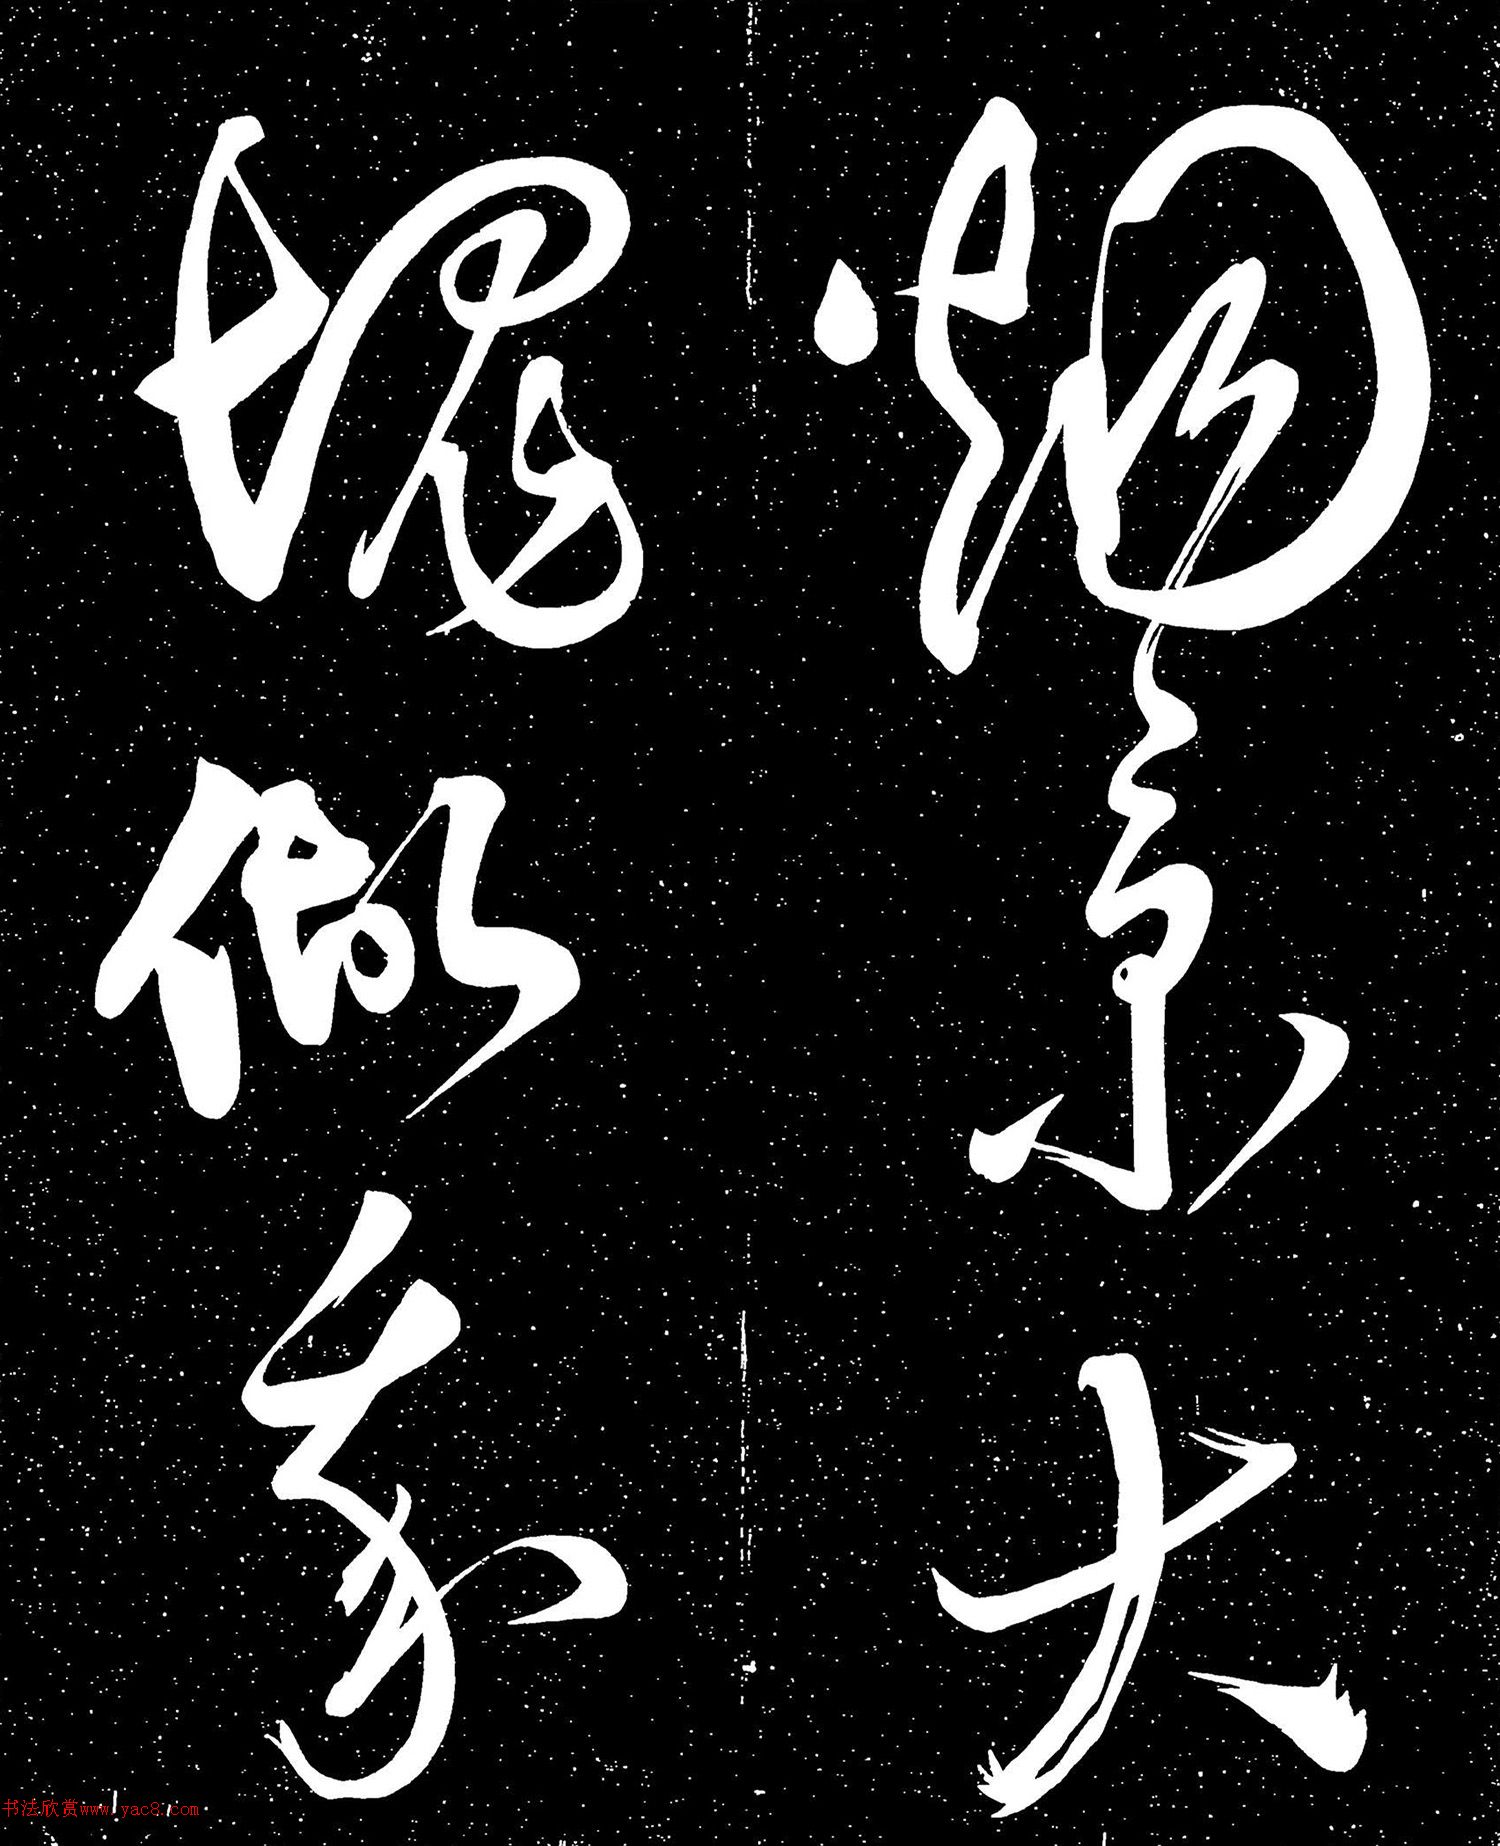 烟景大
塊假我
书法欣赏www.yac8.com